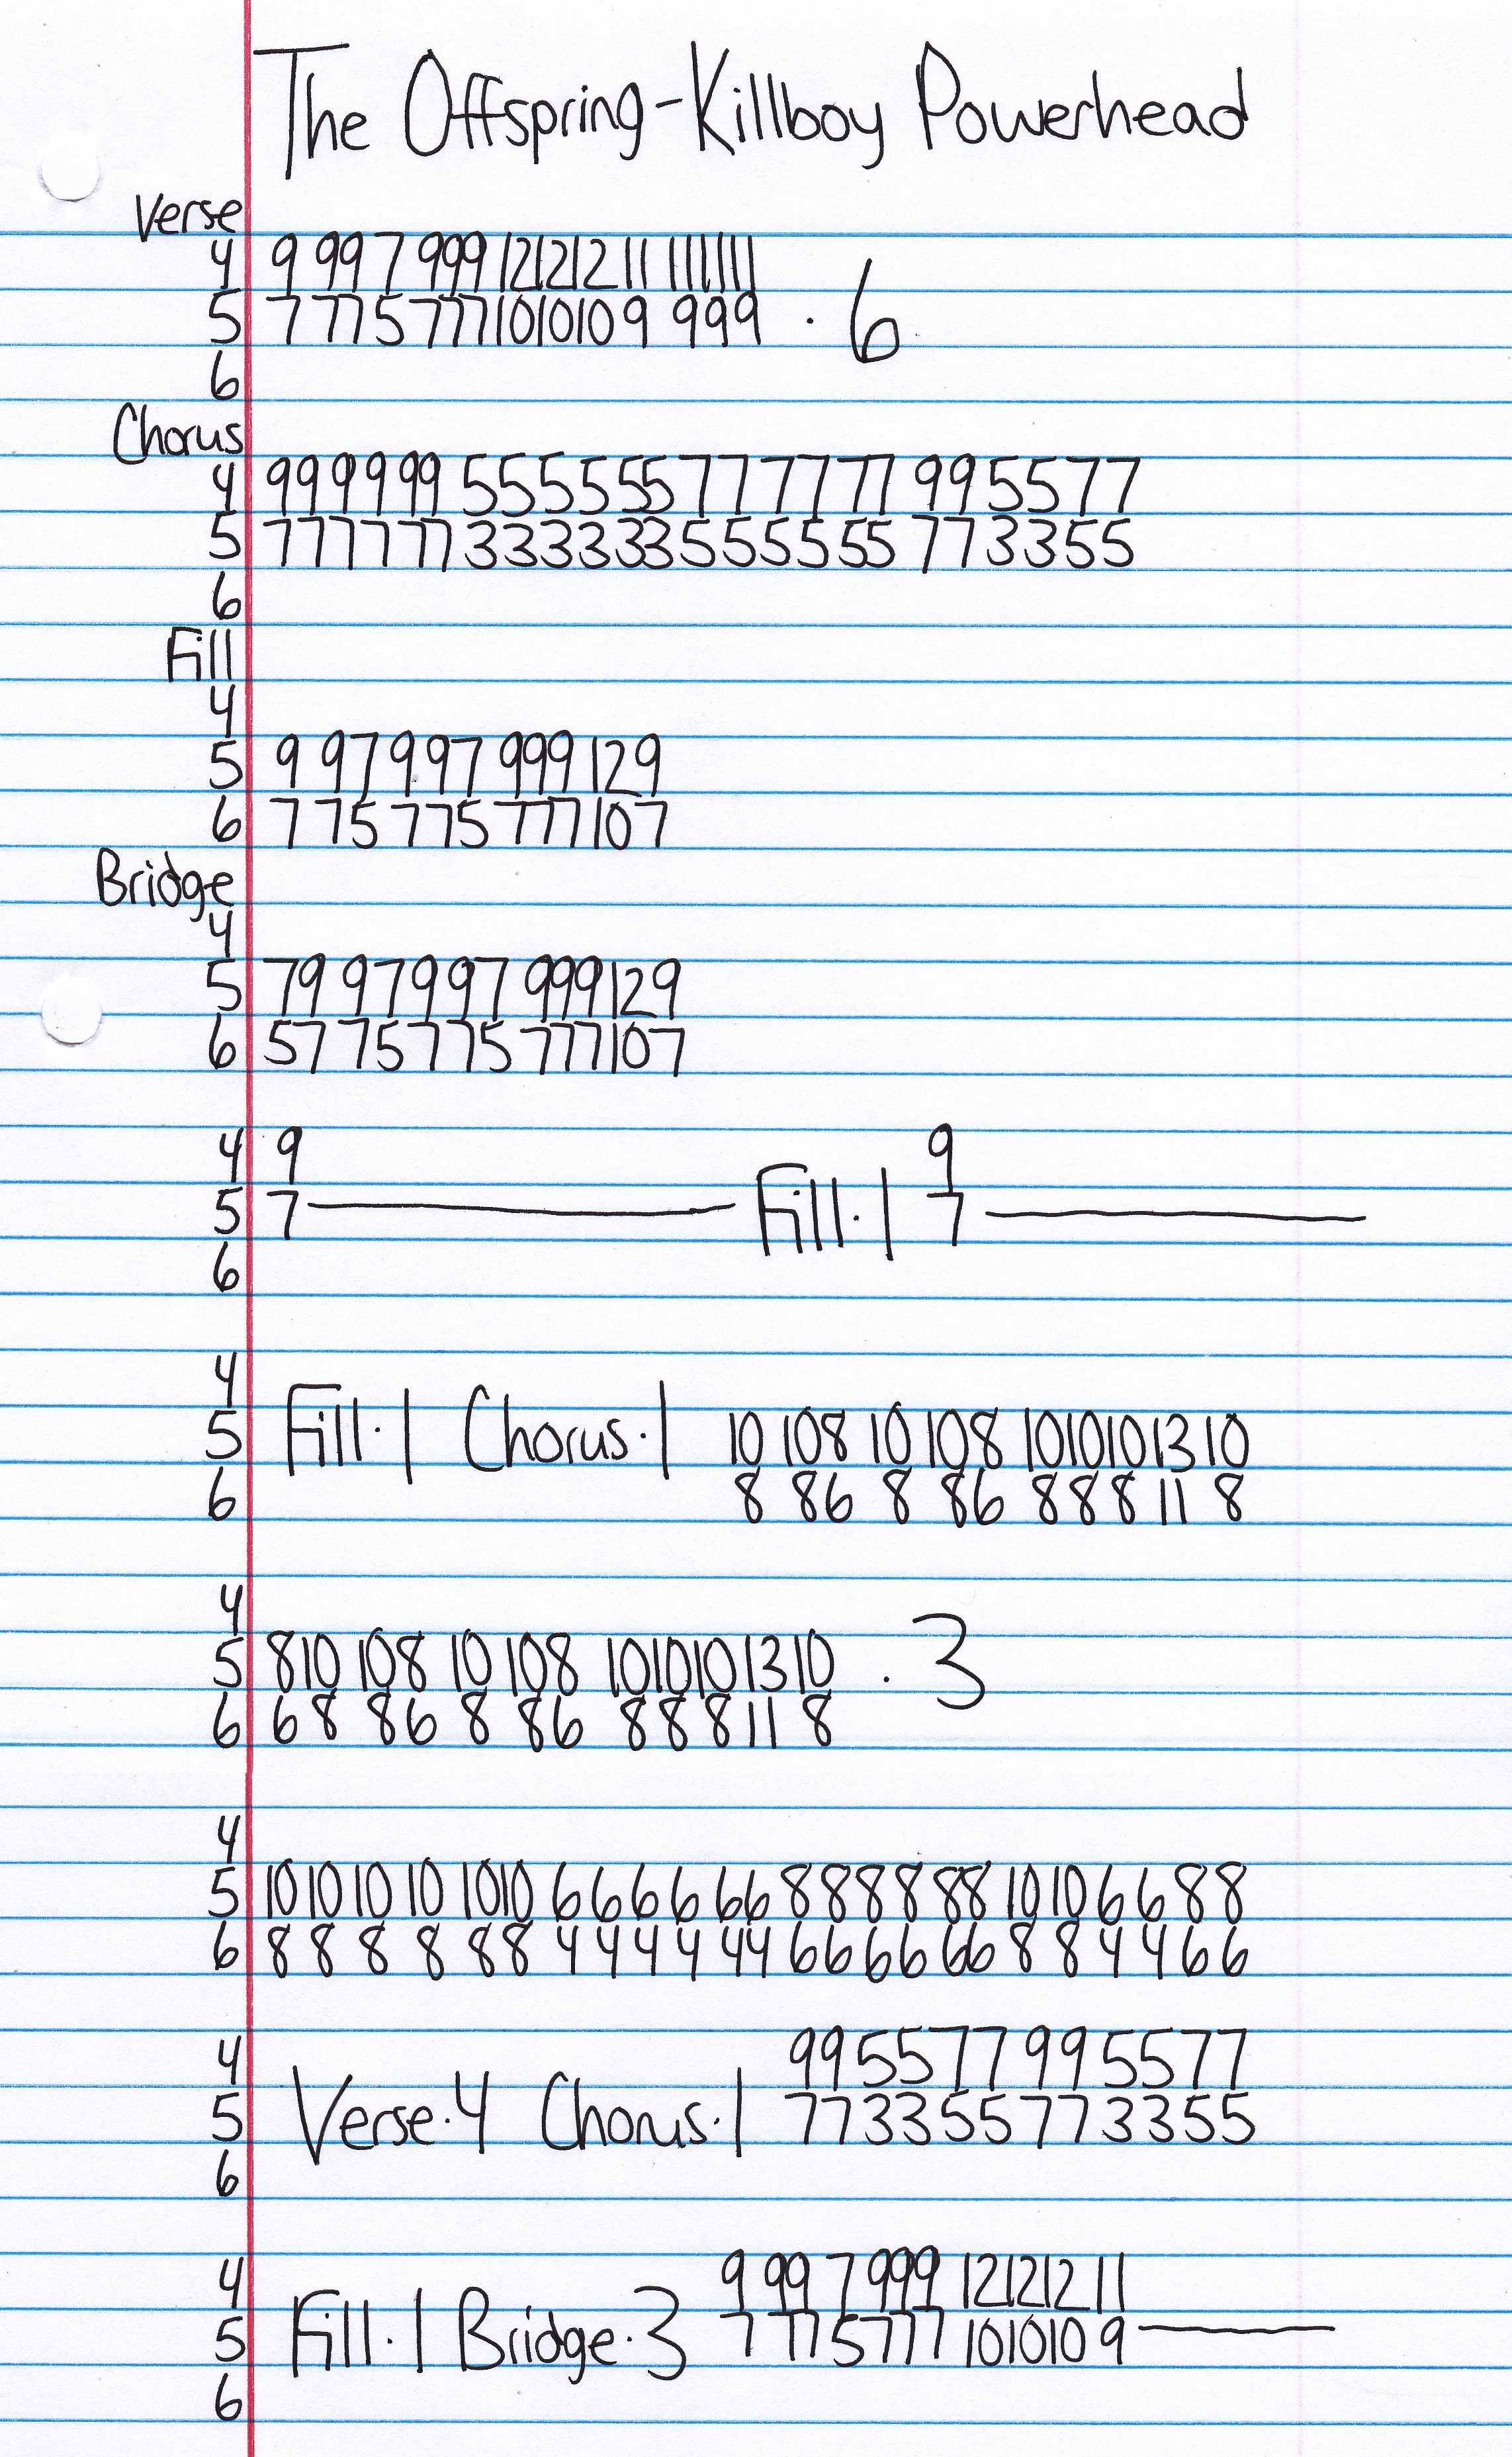 The Offspring-Killboy Powerhead
Verse
4 9 99 7 999 12 12 12 11 11 11 11
5 7 77 5 777 10 10 10 9 999 · 6
6
Chorus
4 999999 555555 777777 99 55 77
5 777777 333333 555555 77 33 55
6
Fill
4
5 9 97 9 97 999 12 9
6 7 75 7 75 777 10 7
Bridge
4
5 79 97 9 97 999 12 9
6 57 75 7 75 777 10 7
4 9 9
5 7 ——— Fill·1 7 ———
6
4
5 Fill·1 Chorus·1 10 10 8 10 10 8 10 10 10 13 10
6 8 86 8 86 8 8 8 11 8
4
5 8 10 10 8 10 10 8 10 10 10 13 10 · 3
6 6 8 86 8 86 8 8 8 11 8
4
5 10 10 10 10 10 10 6 6 6 6 66 8 8 8 8 88 10 10 6 6 8 8
6 8 8 8 8 8 8 4 4 4 4 44 6 6 6 6 66 8 8 4 4 6 6
4 99 55 77 99 55 77
5 Verse·4 Chorus·1 77 33 55 77 33 55
6
4 9 99 7 999 12 12 12 11
5 Fill·1 Bridge·3 7 77 5 777 10 10 10 9 ———
6